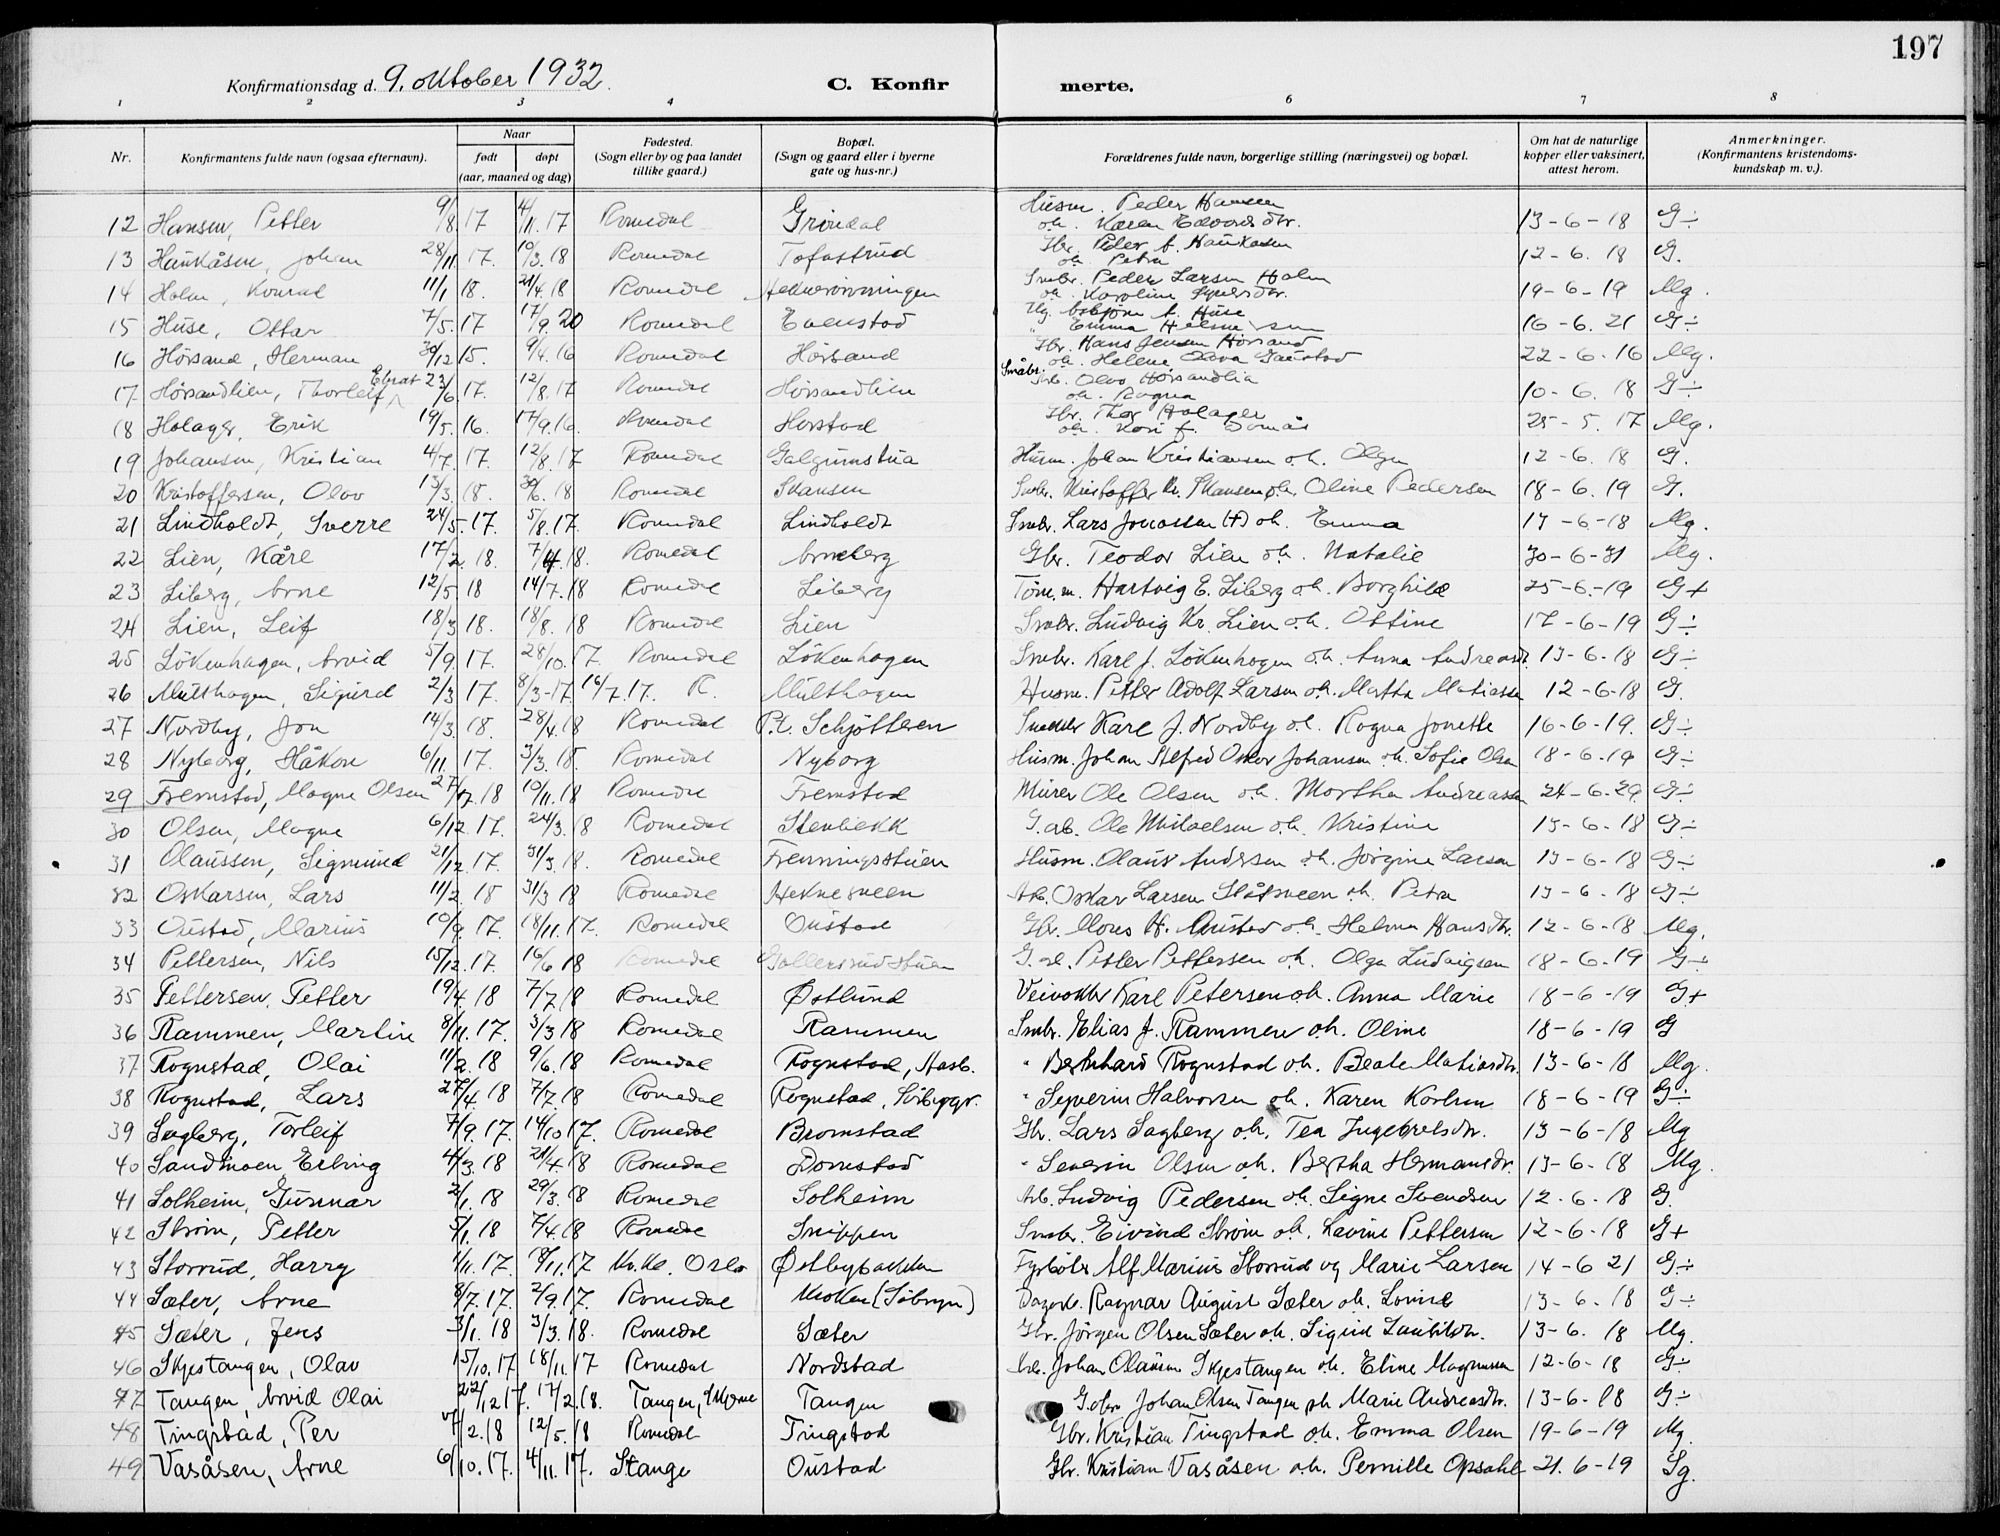 197
Konfirmationsdag d. 9. oktober 1932.
C. Konfirmerte.
1 2 3 4 6 7 8
Nr.
Konfirmantens fulde navn (ogsaa efternavn).
Naar
født døpt
(aar, maaned og dag)
Fødested.
(Sogn eller by og paa landet
tillike gaard.)
Bopæl.
(Sogn og gaard eller i byerne
gate og hus-nr.)
Forældrenes fulde navn, borgerlige stilling (næringsvei) og bopæl.
Om hat de naturlige
kopper eller vaksinert,
attest herom.
Anmerkninger.
(Konfirmantens kristendoms-
kundskap m. v.).
12 Hansen, Petter 9/8.17 4/11.17 Romedal Grøndal Husm. Peder Hansen 13-6-18 G÷
o.h. Karen Edvardsdtr.
13 Haukåsen, Johan 28/11.17. 10/3.18 Romedal Tofastrud Gbr. Peder A. Haukåsen 12-6.18 G.
o.h. Petra
14 Holm, Konrad 11/1.18. 21/4.18 Romedal Smbr. Peder Larsen Holm 19-6-19 Mg.
o.h. Karoline
15 Huse, Ottar 7/5.17 17/9.20 Romedal Evenstad Asbjørn A. Huse 16-6.21 G÷
Emma
16 Hørsand, Herman 30/12.15. 9/4.16 Romedal Hørsand Gbr. Hans Jensen Hørsand 22-6-16 Mg.
o.h. Helene
17 Hørsandlien, Thorleif 23/6.17. 12/8.17 Romedal Hørsandlien Småbr. Olav Hørsandlia 10-6.18 G÷
o.h. Ragna
18 Holager, Erik 19/5.16. 17/9.16. Romedal Horstad Gbr. Thor Holager 25-5.17 Mg.
o.h. Kari f. Domås
19 Johansen, Kristian 4/7.17. 12/8.17 Romedal Galgumstua Husm. Johan Kristiansen o.h. Olga 12-6.18 G.
20 Kristoffersen, Olav 13/3.18. 30/6.18 Romedal Skansen Smbr. Kristoffer Kr. Skansen o.h. Oline Pedersen 18-6.19 G.
21 Lindholdt, Sverre 24/5.17. 5/8.17. Romedal Lindholdt Smbr. Lars Jonassen (+) o.h. Emma 17-6-18 Mg.
22 Lien, Kåre 17/2.18. 7/4.18. Romedal Arneberg Gbr. Teodor Lien o.h. Natalie 30-6-31 Mg.
23 Liberg, Arne 12/5.18 14/7.18 Romedal Liberg Tøm.m. Hartvig E. Liberg o.h. Borghild 25-6-19 G+
24 Lien, Leif 18/3.18. 18/8.18 Romedal Lien Smbr. Ludvig Kr. Lien o.h. Ottine 17-6-19 G÷
25 Løkenhagen, Arvid 5/9.17. 28/10.17. Romedal Løkenhagen Smbr. Karl J. Løkenhagen o.h. Anna Andreasdt. 13-6-18 G÷
26 Multhagen, Sigurd 2/3.17. 8/3-17 16/7.17. R. Multhagen Husm. Petter Adolf Larsen o.h. Martha Matiassen 12-6-18 G.
27 Nordby, Jon 14/3.18. 28/4.18 Romedal P.t. Schjøtteen Snekker Karl J. Nordby o.h. Ragna Jonette 16-6-19. G÷
28 Nyborg, Håkon 6/11.17. 3/3.18. Romedal Nyborg Husm. Johan Alfred Oskar Johansen o.h. Sofie Olsen 18-6-19 G÷
29 Fremstad, Magne Olsen 27/7.18 10/11.18 Romedal Fremstad Murer Ole Olsen o.h. Martha Andreassen 24-6-29. G÷
30 Olsen, Magne 6/12.17. 24/3.18 Romedal Stenbekk G.arb. Ole Mikaelsen o.h. Kristine 15-6-18 G÷
31 Olaussen, Sigmund 21/12.17. 31/3.18. Romedal Frenningsstuen Husm. Olaus Andersen o.h. Jørgine Larsen 13-6-18 G÷
32 Oskarsen, Lars 11/2.18 31/3.18 Romedal Heknesveen Arb. Oskar Larsen Slåtsveen o.h. Petra 13-6-18 G÷
33 Oustad, Marius 10/9.17. 18/11.17. Romedal Oustad Gbr. Mons H. Oustad o.h. Helma Hansdtr. 12-6-18 Mg.
34 Pettersen, Nils 15/12.17. 16/6.18 Romedal Gollerrudstuen Petter Pettersen o.h. Olga Ludvigsen 18-6-19 G÷
35 Pettersen, Petter 19/4.18 7/7.18 Romedal Østlund Veivokter Karl Petersen o.h. Anna Marie 18-6-19 G+
36 Rammen, Martin 8/11.17. 3/3.18 Romedal Rammen Smbr. Elias J. Rammen o.h. Oline 18-6-19 G
37 Rognstad, Olai 11/2.18 9/6.18 Romedal Rognstad, Hasb. " Bernhard Rognstad o.h. Beate Matiasdtr. 13-6-18 Mg.
38 Rognstad, Lars 27/4.18 7/7.18 Romedal Rognstad, Sørbygr. " Syverin Halvorsen o.h. Karen Karlsen 18-6-19 G÷
39 Sagberg, Torleif 7/9.17. 14/10.17. Romedal Bromstad Gbr. Lars Sagberg o.h. Tea Ingebretsdtr. 13-6-18 Mg
40 Sandmoen, Erling 4/3.18 21/4.18 Romedal Domstad " Severin Olsen o.h. Bertha Hermansdtr. 13-6-18 Mg.
41 Solheim, Gunnar 2/1.18 29/3.18 Romedal Solheim Arb. Ludvig Pedersen o.h. Signe Svendsen 12-6-18 G.
42 Strøm, Petter 5/1.18 7/4.18 Romedal Snippen Smbr. Eivind Strøm o.h. Lavine Pettersen 12-6-18 G+
43 Storrud, Harry 1/11.17. 18/11.17 Oslo Østbybakken Fyrbøter Alf Marius Storrud og Marie Larsen 14-6 21 G÷
44 Sæter, Arne 8/7.17. 2/9.17. Romedal Moken (Sørbygr.) Ragnar August Sæter o.h. Lovise 13-6-18 G÷
45 Sæter, Jens 3/1.18 3/3.18. Romedal Sæter Gbr. Jørgen Olsen Sæter o.h. Sigrid 13-6.18 Mg.
46 Skjestangen, Olav 15/10.17 18/11.17 Romedal Nordstad Arb. Johan Olaussen Skjestangen o.h. Eline Magnussen 12-6-18 G÷
47 Tangen, Arvid Olai 22/12.17. 17/2.18. Tangen, Tangen Johan Olsen Tangen o.h. Marie Andreasdtr. 13-6-18 G÷
48 Tingstad, Per 7/2.18 12/5.18 Romedal Tingstad Gbr. Kristian Tingstad o.h. Emma Olsen 19-6-19 Mg.
49 Vasåsen, Arne 6/10.17. 4/11.17. Stange Oustad Gbr. Kristian Vasåsen o.h. Pernille Opsahl 21.6-19 Sg.